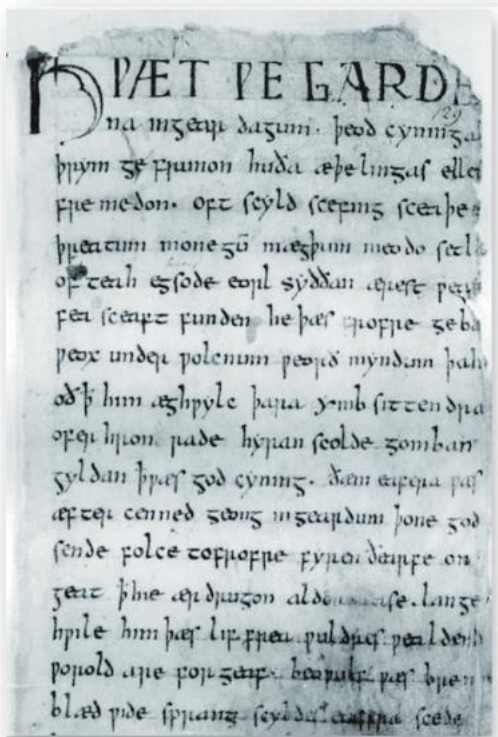 HǷÆT ǷE GARDE
129
na ingear dagum. þeod cyninga
þrym ge frunon huða æþelingas ellen
fre medon. oft scyld scefing sceaþe
þreatum monegū mægþum meodo setla
of teah egsode eorl syððan ærest ƿear
fea sceaft funden he þæs frofre geba
ƿeox under ƿolcnum ƿeorð myndum þah
oð ꝥ him æghƿylc þara ymb sittendra
ofer hron rade hyran scolde gomban
gyldan ꝥ ƿæs god cyning. ðæm eafera ƿæs
æfter cenned geong ingeardum þone god
sende folce tofrofre fyren ðearfe on
geat ꝥ hie ær drugon lange
hƿile him þæs lif frea ƿuldres ƿealdend
ƿorold are for geaf. beoƿulf ƿæs breme
blæd ƿide sprang scyldes eafera scede